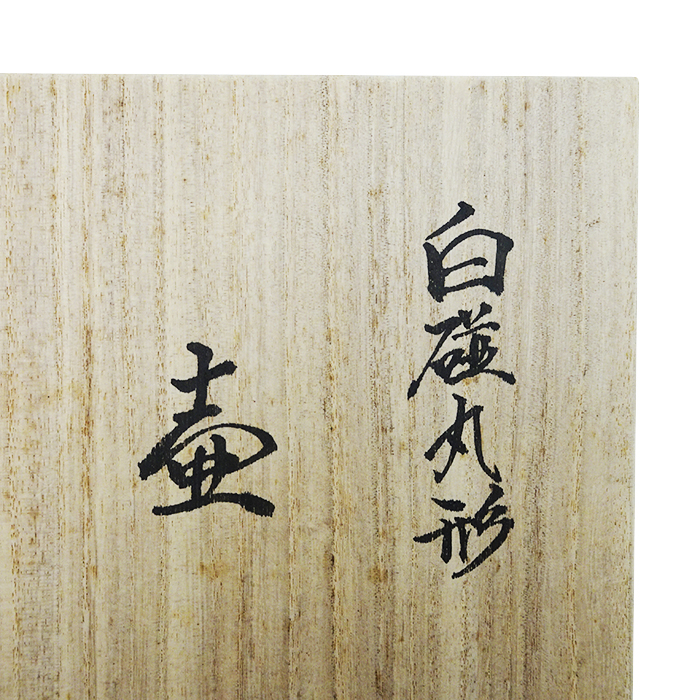 白磁丸形
壷